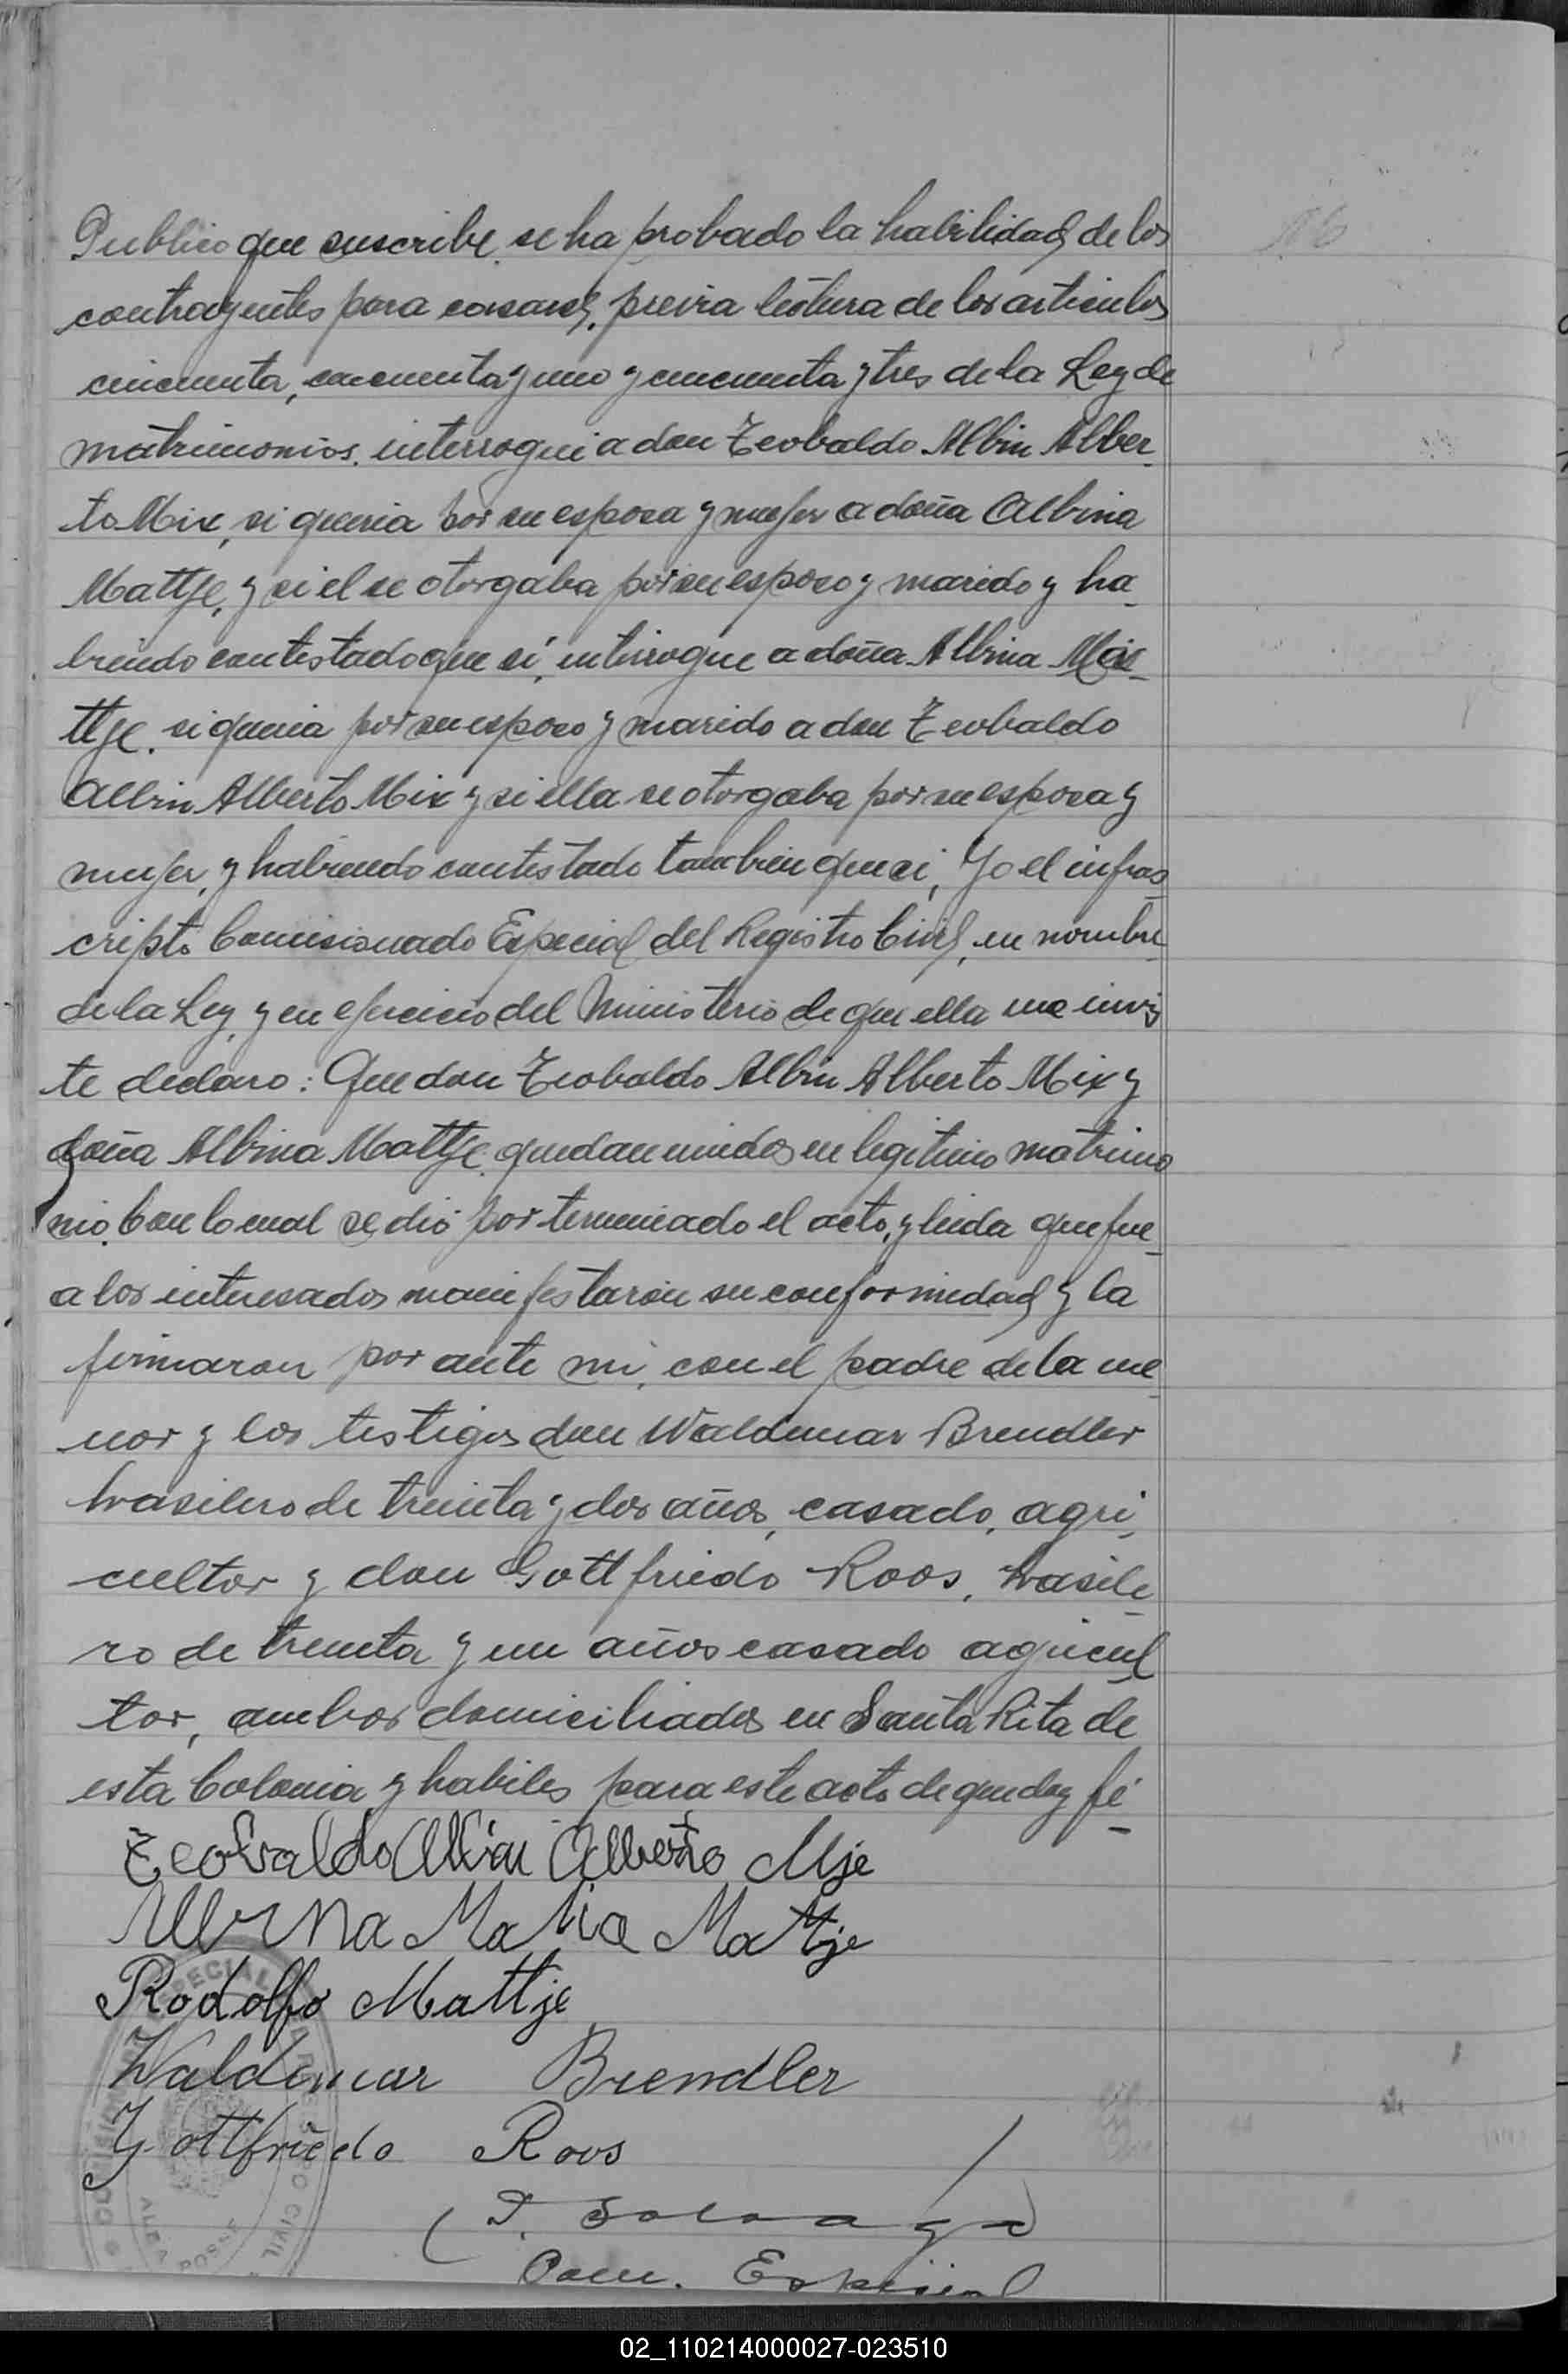 Publico que suscribe, se ha probado la habilidad de los
contrayentes para casarse, previa lectura de los articulos
cincuenta, cincuenta y uno y cincuenta y tres de la Ley de
matrimonios, interrogué a don Teobaldo Albin Alber-
to Mix, si queria por su esposa y mujer a doña Albina
Mattje, y si el se otorgaba por su esposo y marido y ha-
biendo contestado que sí, interrogue a doña Albina Ma-
ttje, si queria por su esposo y marido a don Teobaldo
Albin Alberto Mix y si ella se otorgaba por su esposa y
mujer, y habiendo contestado tambien que si, Yo el infras-
cripto Comisionado Especial del Registro Civil, en nombre
de la Ley, y en ejercicio del Ministerio de que ella me invis
te declaro: Que don Teobaldo Albin Alberto Mix y
doña Albina Mattje, quedan unidos en legitimo matrimo
nio. Con lo cual se dió por terminado el acto, y leida que fue
a los interesados manifestaron su conformidad y la
firmaron por ante mi, con el padre de la me-
nor y los testigos don Waldemar Brendler
brasilero de treinta y dos años, casado, agri-
cultor y don Gottfriedo Roos, brasile-
ro de treinta y un años casado agricul
tor, ambos domiciliados en Santa Rita de
esta Colonia y habiles para este acto de que doy fé-
Teobaldo Albin Alberto Mje
Albina Maria Mattje
Rodolfo Mattje
Waldemar Brendler
Gottfriedo Roos
Com. Especial
COMISION ESPECIAL REGISTRO CIVIL
ALBA POSSE
02_110214000027-023510